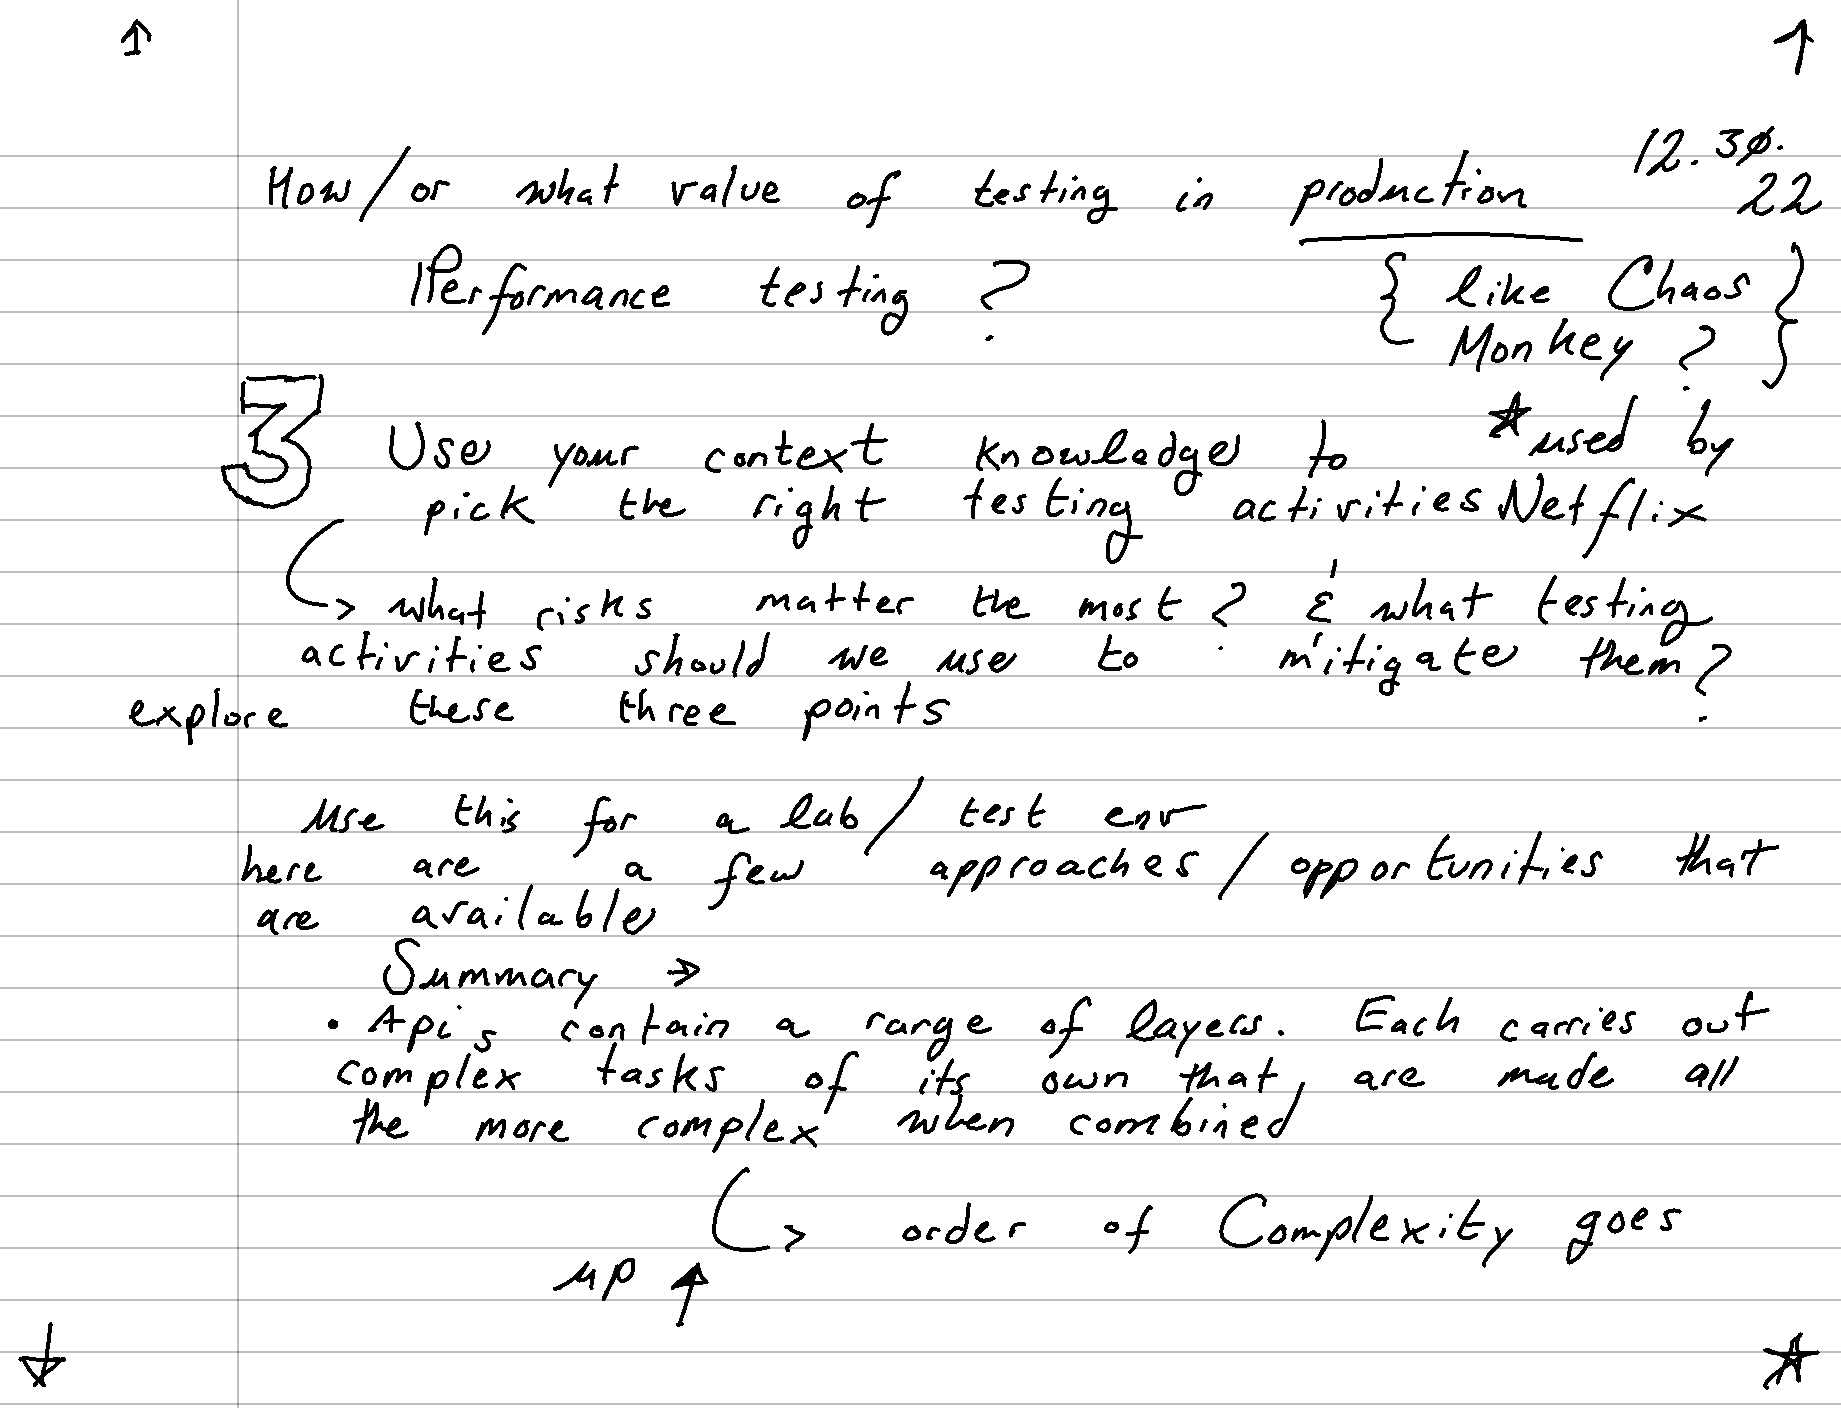 12.30.
How/or what value of testing in production 22
Performance testing? { like Chaos
Monkey? }
3 Use your context knowledge to *used by
pick the right testing activities Netflix
what risks matter the most? & what testing
activities should we use to mitigate them?
explore these three points
Use this for a lab/test env
here are a few approaches/opportunities that
are available
Summary →
• Apis contain a range of layers. Each carries out
complex tasks of its own that, are made all
the more complex when combined
order of Complexity goes
up ↑